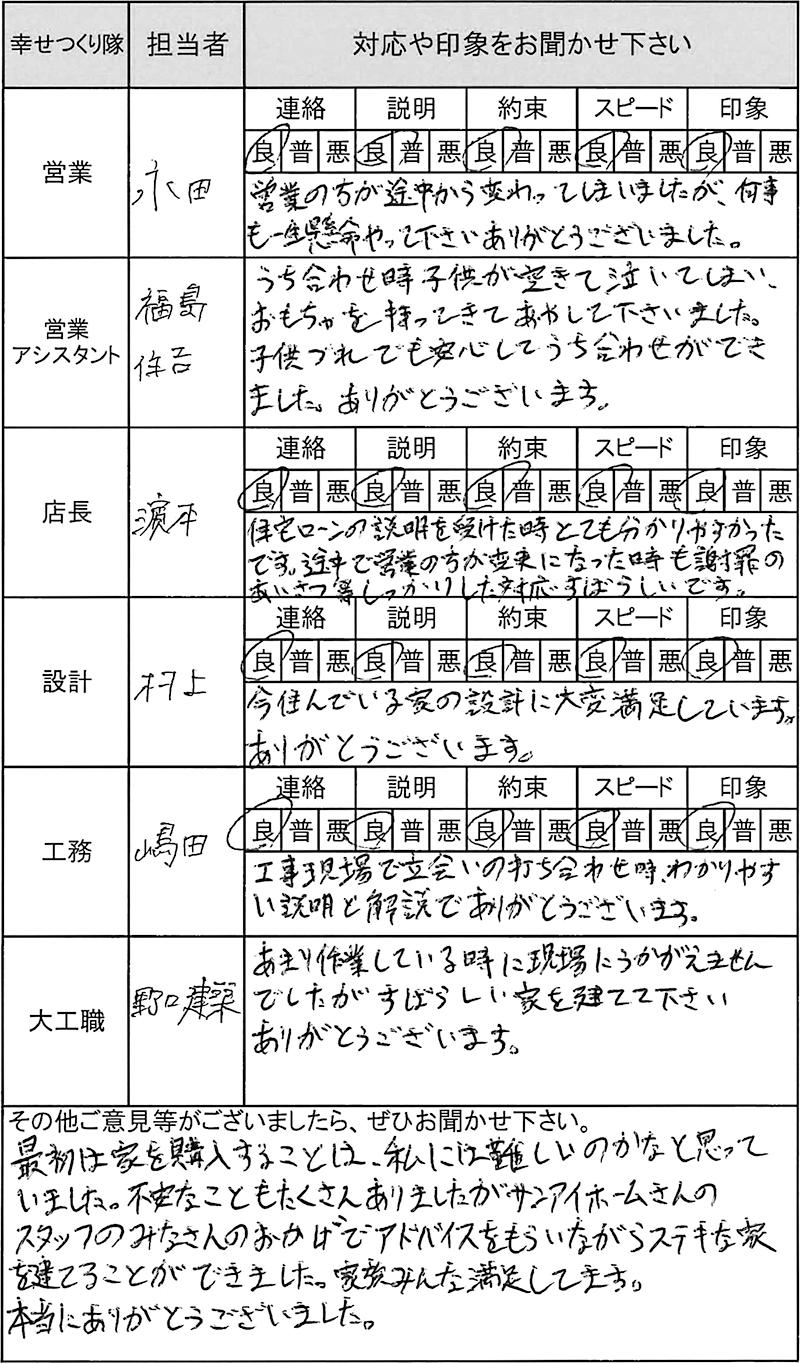 幸せつくり隊 担当者 対応や印象をお聞かせ下さい
連絡 説明 約束 スピード 印象
良 普 悪 良 普 悪 良 普 悪 良 普 悪 良 普 悪
営業 永田
営業の方が途中から変わってしまいましたが、何事
も一生懸命やって下さいありがとうございました。
営業
アシスタント
福島
住吉
うち合わせ時子供が空きて泣いてしまい、
おもちゃを持ってきてあやして下さいました。
子供づれでも安心してうち合わせができ
ました。ありがとうございます。
連絡 説明 約束 スピード 印象
良 普 悪 良 普 悪 良 普 悪 良 普 悪 良 普 悪
店長 濵本
住宅ローンの説明を受けた時とても分かりやすかった
です。途中で営業の方が変更になった時も謝罪の
あいさつ等しっかりした対応すばらしいです。
連絡 説明 約束 スピード 印象
良 普 悪 良 普 悪 良 普 悪 良 普 悪 良 普 悪
設計 村上
今住んでいる家の設計に大変満足しています。
ありがとうございます。
連絡 説明 約束 スピード 印象
良 普 悪 良 普 悪 良 普 悪 良 普 悪 良 普 悪
工務 嶋田
工事現場で立会いの打ち合わせ時、わかりやす
い説明と解説でありがとうございます。
大工職 野口建築
あまり作業している時に現場にうかがえません
でしたがすばらしい家を建てて下さい
ありがとうございます。
その他ご意見等がございましたら、ぜひお聞かせ下さい。
最初は家を購入することは、私には難しいのかなと思って
いました。不安なこともたくさんありましたがサンアイホームさんの
スタッフのみなさんのおかげでアドバイスをもらいながらステキな家
を建てることができました。家族みんな満足してます。
本当にありがとうございました。